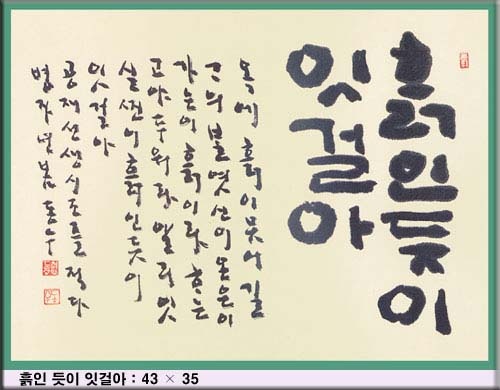 흙인듯이
잇걸아
옥에 흙이 뭇어 길
ᄀᆞ의 ᄇᆞ렷신이 온은이
가는이 흙이라 ᄒᆞ는
고야 두워라 알리 잇
실쩐이 흙인듯이
잇걸아
공재선생 시조를 적다
흙인 듯이 잇걸아 : 43 × 35